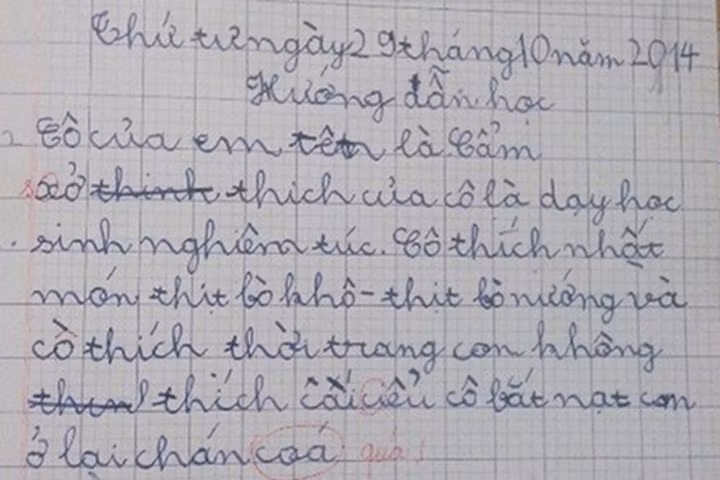 Thứ tư ngày 29 tháng 10 năm 2014
Hướng dẫn học
Cô của em tên là Cẩm
sở thinh thich của cô là dạy học
sinh nghiêm túc. Cô thích nhất
món thịt bò khô - thịt bò nướng và
cò thích thời trang con không
thin thích cái kiểu cô bắt nạt con
ở lại chán coá quá!